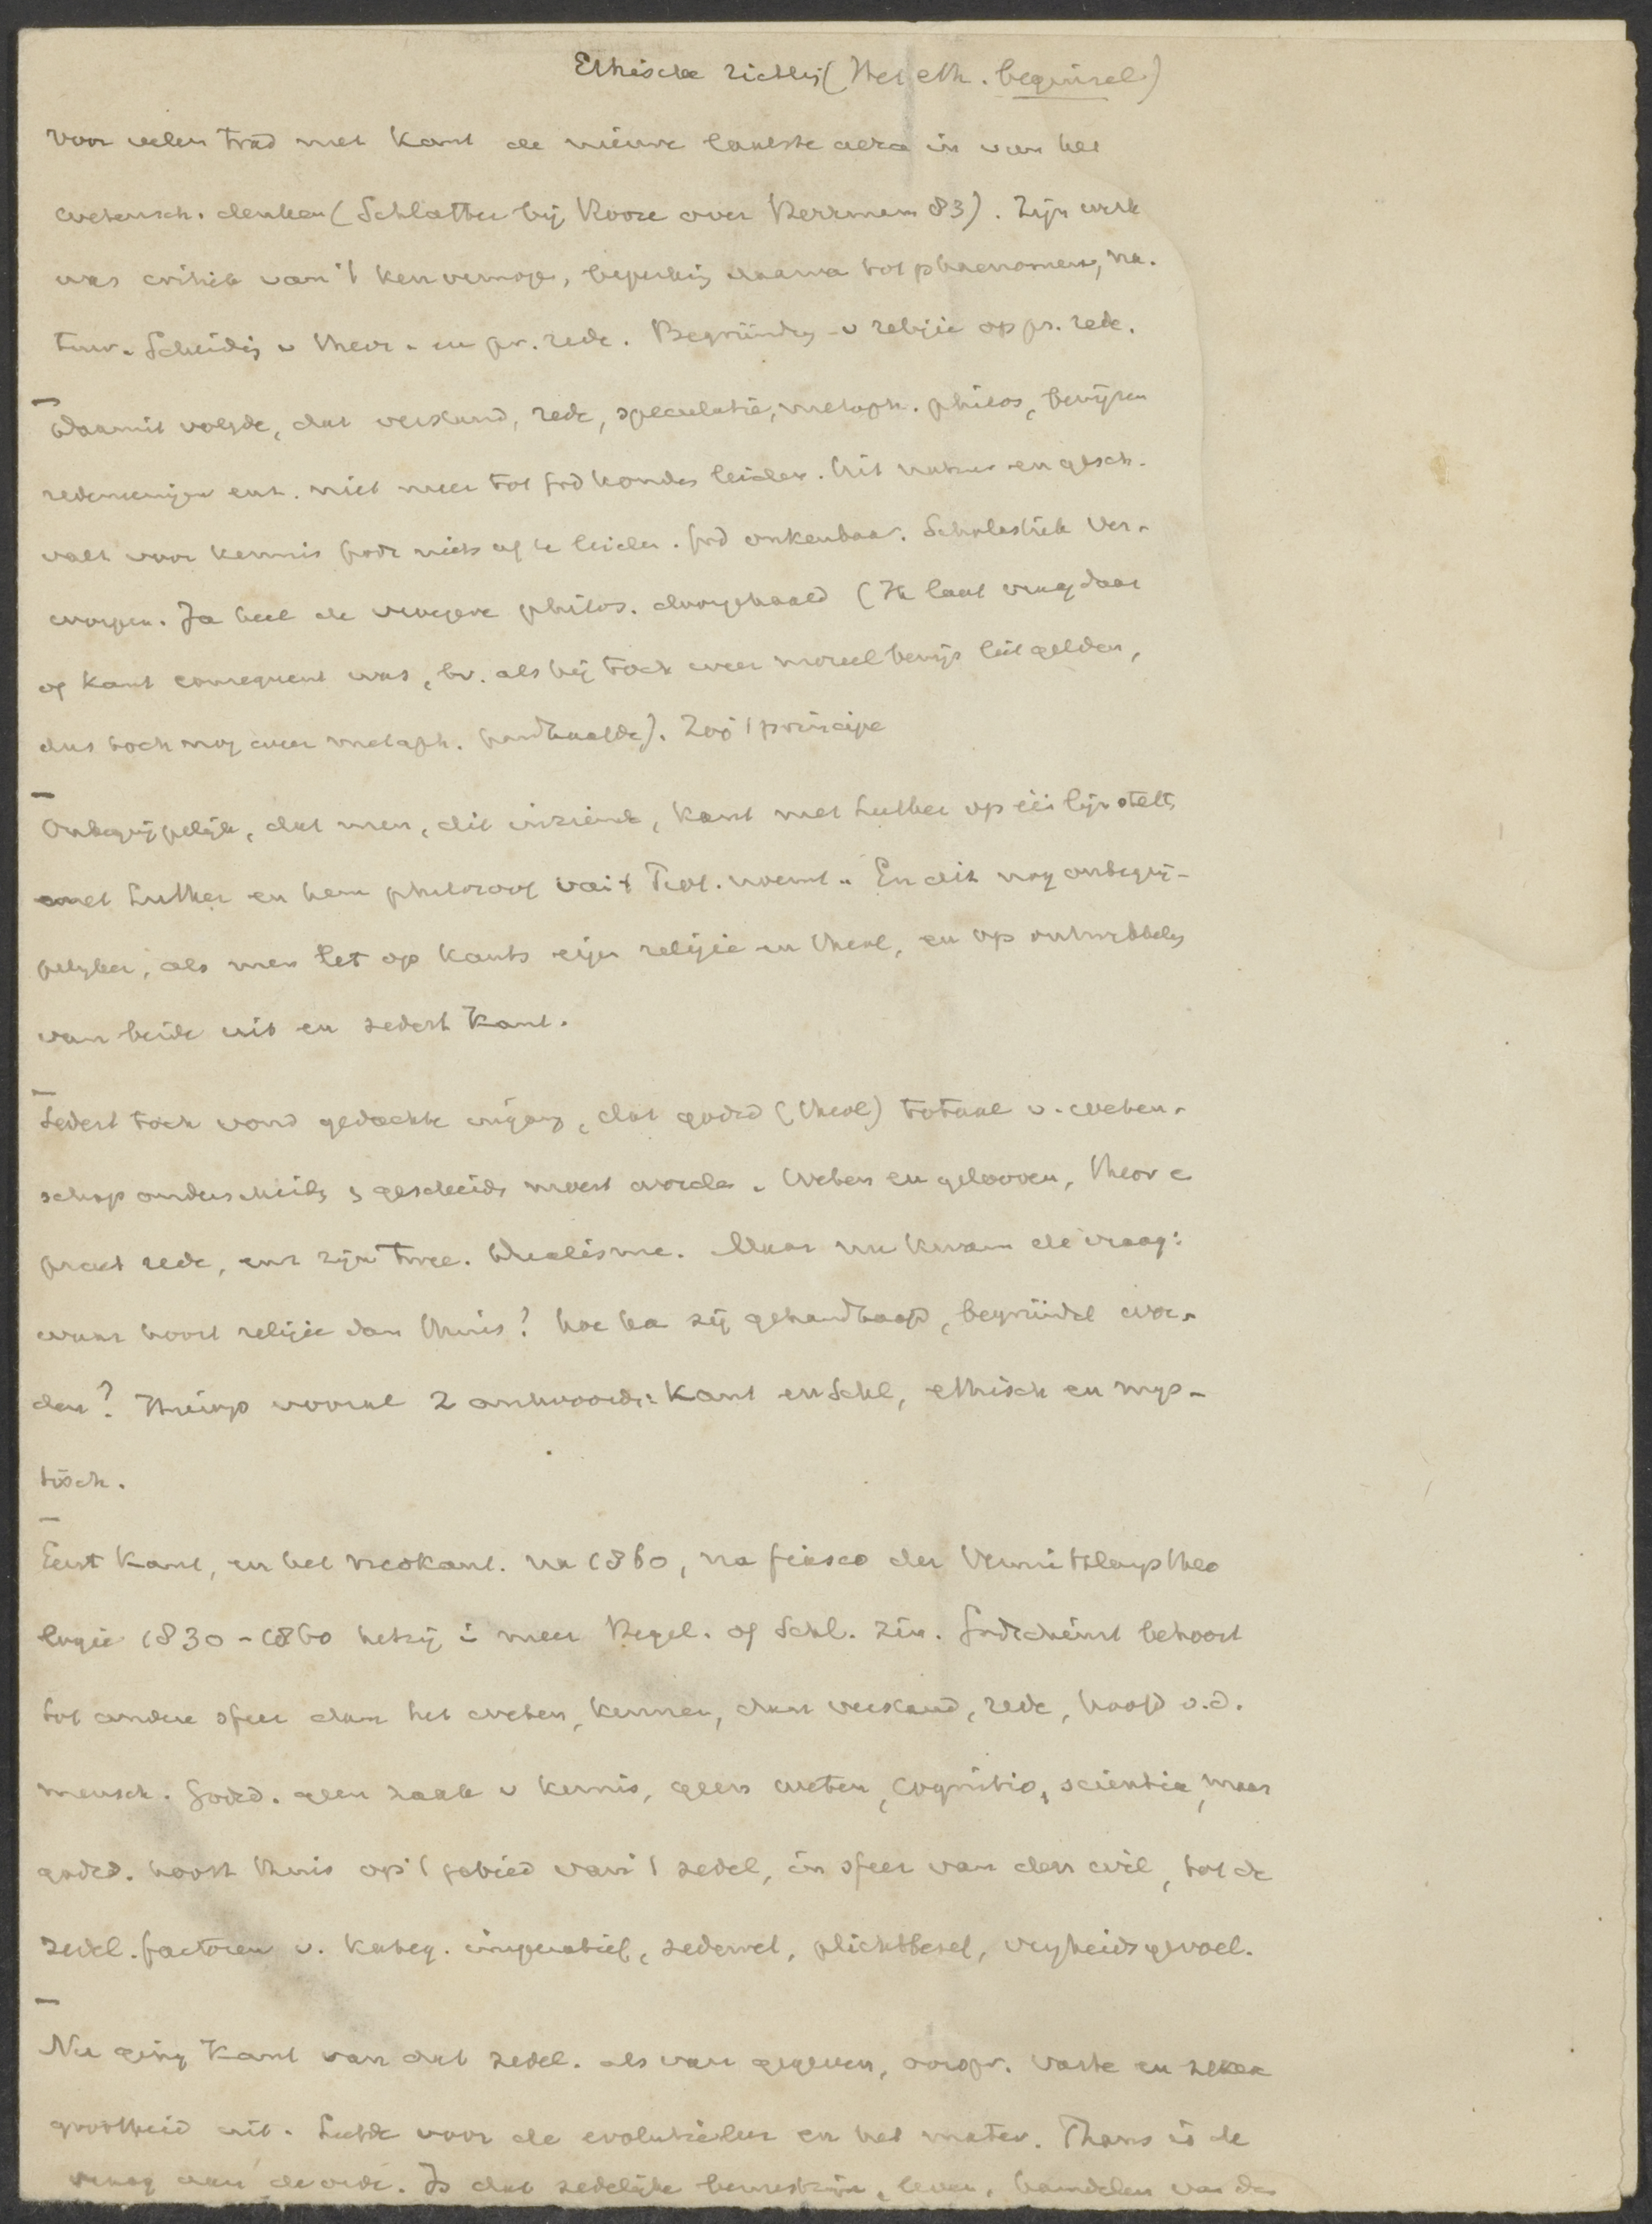 Ethische richting (Het eth. beginsel)
Voor velen trad met Kant de nieuwe laatste aera in van het
wetensch. denken (Schlatter bij Kooze over Herrmann 83). Zijn werk
was critiek van 't kenvermogen, beperking daarvan tot phaenomena, na-
tuur. Scheiding v theor. en pr. rede. Begründung v religie op pr. rede.
Daarmit volgde, dat verstand, rede, speculatie, metaph. philos, bewijzen
redeneeringen enz. niet meer tot godkonden leiden. Uit natuur en gesch.
valt voor kennis Gods niets af te leiden. God onkenbaar. Scholastiek ver-
worpen. Ja heel de vroegere philos. doorgehaald (Ik laat vraag daar
of Kant consequent was, bv. als hij toch weer moreel bewijs liet gelden,
dus toch nog weer metaph. handhaafde). Zoo 't principe
Onbegrijpelijk, dat men, dit inziende, Kant met Luther op één lijn stelt,
met Luther en hem philosoof van 't Prot. noemt. En dit nog onbegrij-
pelijker, als men let op Kants eigen religie en theol, en op ontwikkeling
van beide uit en sedert Kant.
Sedert toch vond gedachte ingang, dat godsd (theol) totaal v. weten-
schap onderscheiden, gescheiden moest worden. Weten en gelooven, theor e
pract rede, enz zijn twee. Dualisme. Maar nu kwam de vraag:
waar hoort religie dan thuis? hoe ka zij gehandhaafd, begründet wor-
den? Hierop vooral 2 antwoorden: Kant en Schl, ethisch en mys-
tisch.
Eerst Kant, en het neokant. na 1860, na fiasco der Vermittlungstheo
logie 1830-1860 hetzij i meer Hegel. of Schl. zin. Godsdienst behoort
tot andere sfeer dan het weten, kennen, dan verstand, rede, hoofd v.d.
mensch. Godsd. geen zaak v kennis, geen weten, cognitio, scientia, maar
godsd. hoort thuis op 't gebied van 't zedel, in sfeer van den wil, tot de
zedel. factoren v. kateg. imperatief, zedewet, plichtbesef, vryheidsgevoel.
Nu ging Kant van dat zedel. als van gegeven, oorspr. vaste en zekere
grootheid uit. Leefde voor de evolutieleer en het mater. Thans is de
vraag aan de orde. Is dat zedelijke bewustzijn, leven, handelen van den